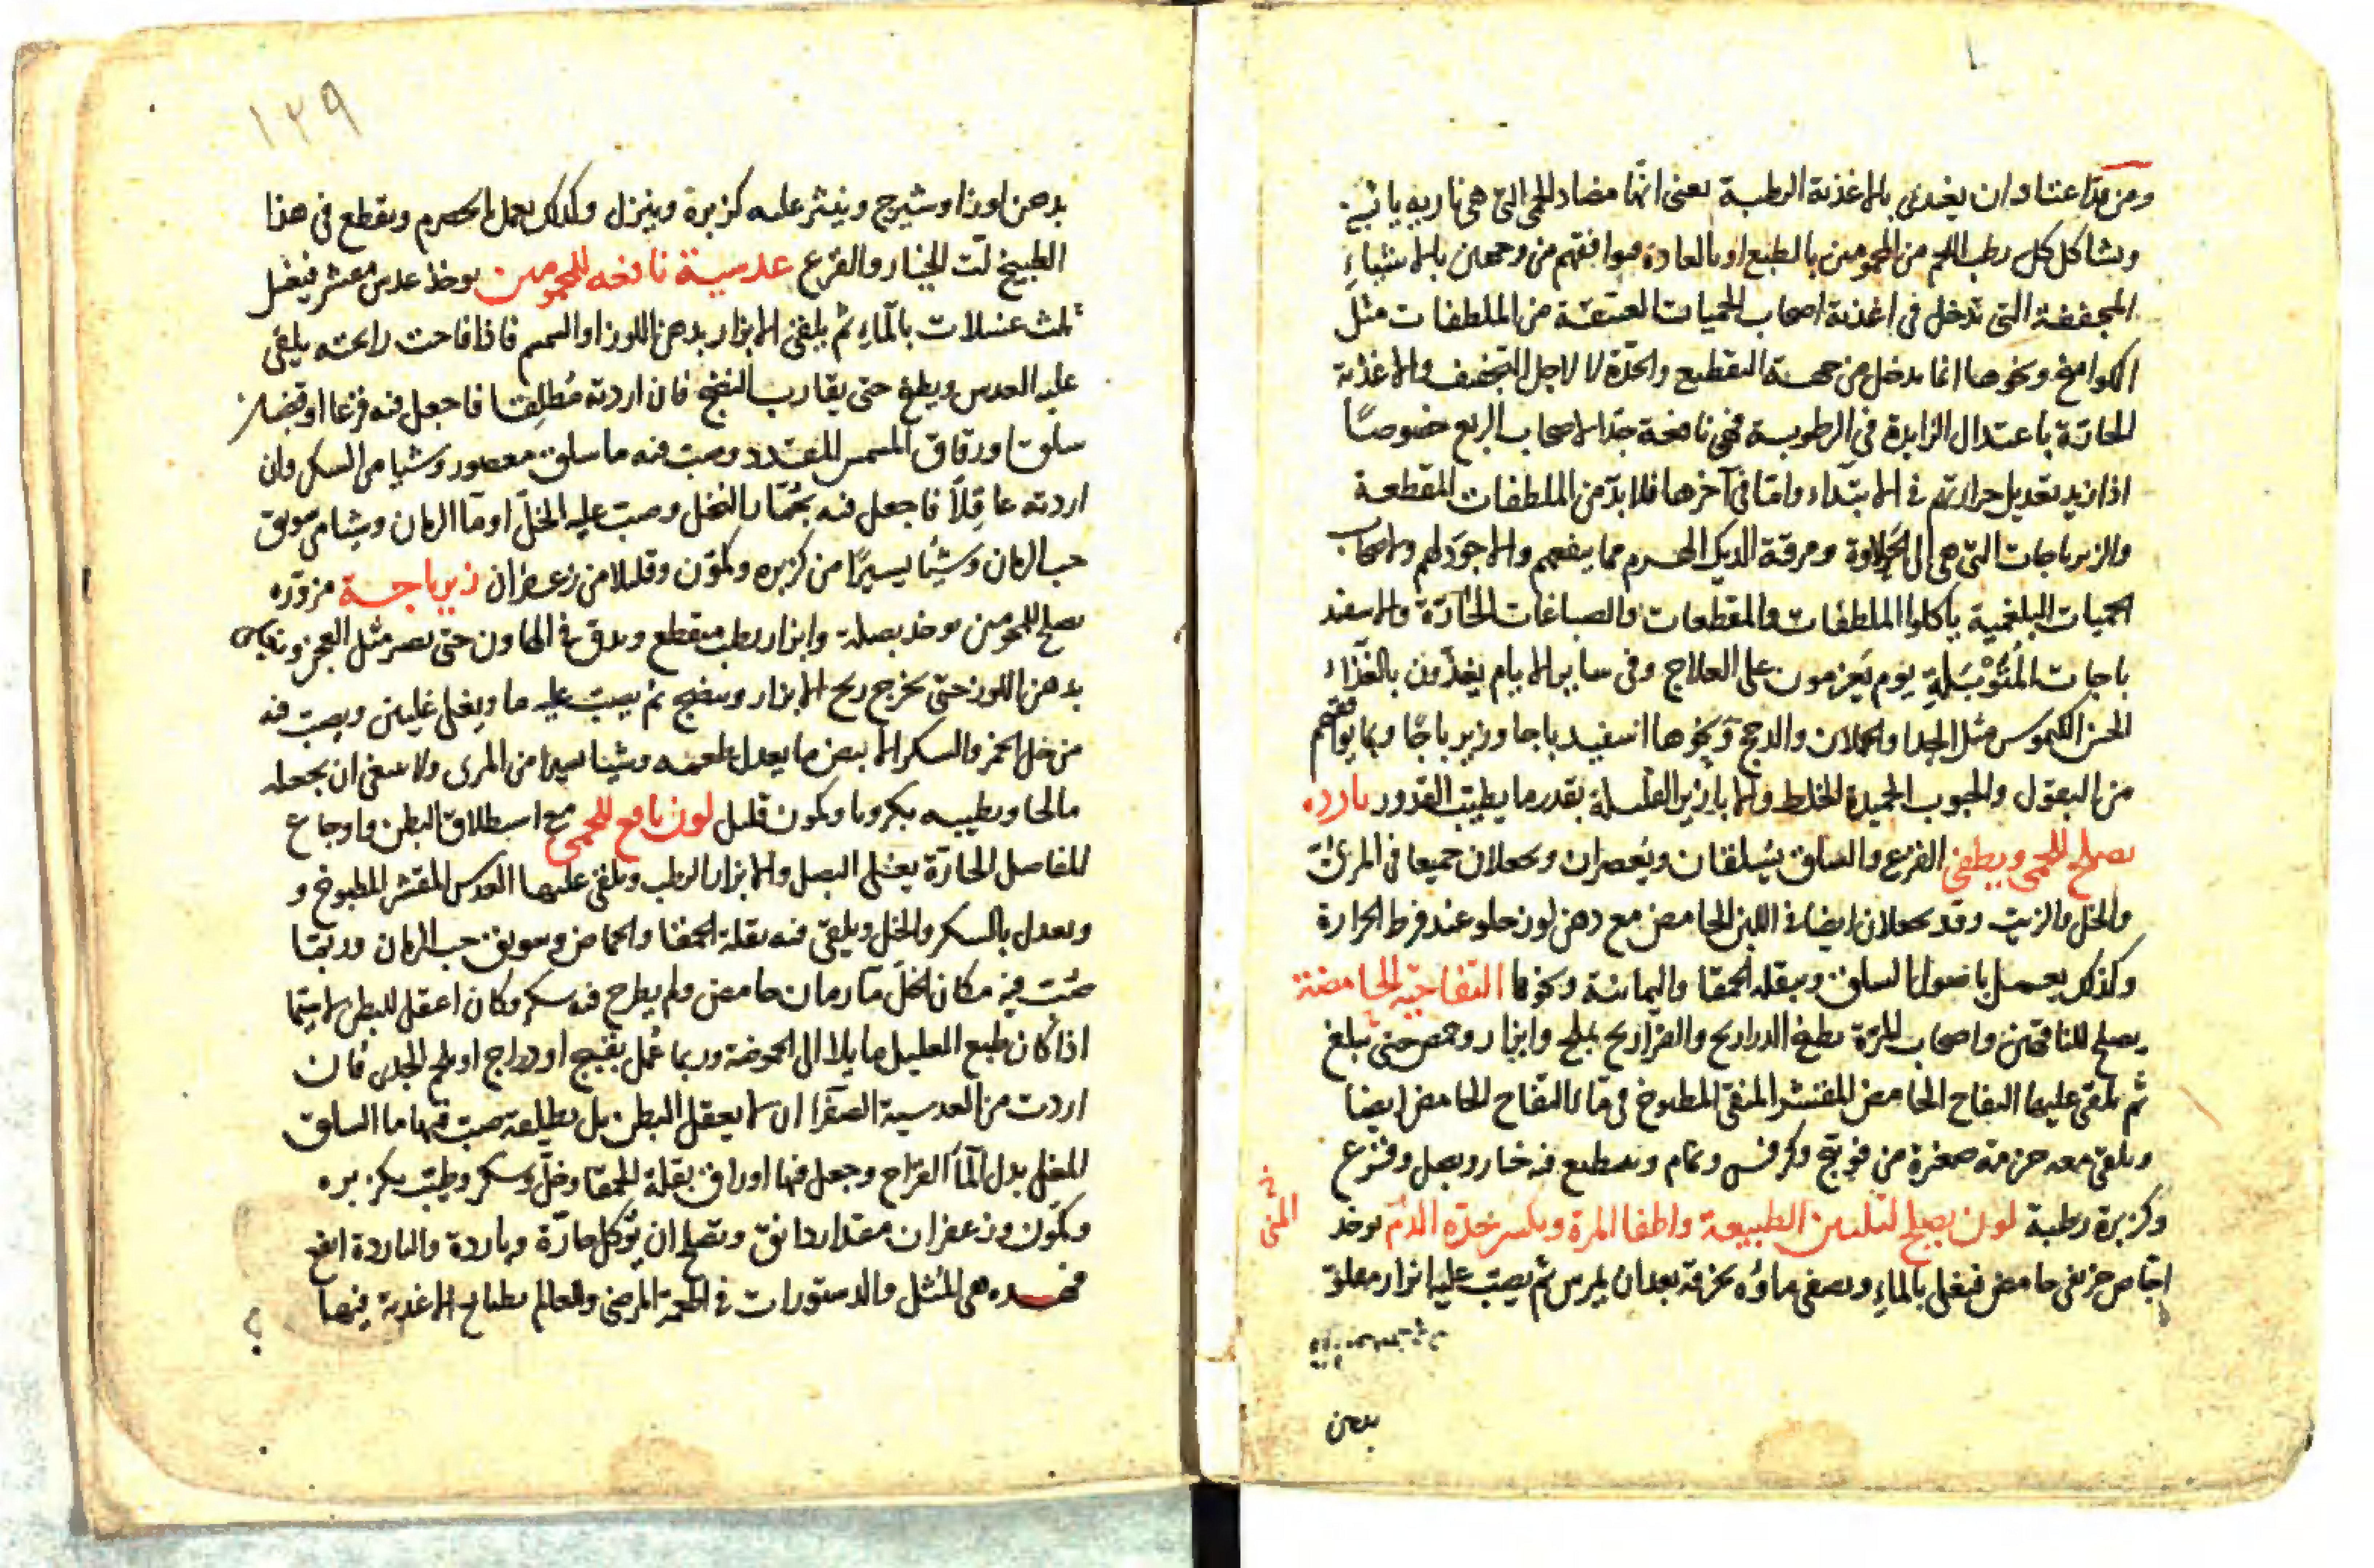 ومن قد اعتاد ان يغدى بالاغذية الرطبة يعنى انها مضاد للحمى التى هى نارية يابسة
ويشاكل كل رطب اللحم من المحمومين بالطبع او بالعادة فيوافقهم من وجهين بالاشياء
المجففة التى تدخل فى اغذية اصحاب الحميات العتيقة من الملطفات مثل
الكوامخ ونحوها انما يدخل من جهة التقطيع والحدة لا لاجل التجفيف والاغذية
الحارة باعتدال الزايدة فى الرطوبة فهى نافعة جدا لاصحاب الربع خصوصًا
اذا اريد تعديل حرارتهم فى الابتداء واما فى آخرها فلا بد من الملطفات المقطعة
والزيرباجات التى هى الى الحلاوة ومرقة الديك الهرم مما ينفعهم والاجود لهم ولاصحاب
الحميات البلغمية ياكلوا الملطفات والمقطعات والصباغات الحارة والاسفيد
باجات المُتَوْبَلة يوم يَعزمون على العلاج وفى ساير الايام يغذّون بالغذاء
الحسن الكيموس مثل الجدا والحملان والدجج ونحوها اسفيدباجا وزيرباجًا وبما يوافقهم
من البقول والحبوب الجيدة الخلط والابازير القليلة بقدر ما يطيب القدور باردة
يصلح للحمى ويطفى القرع والسلق يُسلقان ويُعصران ويجعلان جميعا فى المرى
والخل والزيت وقد يجعلان ايضا فى اللبن الحامض مع دهن لوز حلو عند فرط الحرارة
وكذلك يعمل باصول السلق وببقلة الحمقا واليمانية ونحوها التفاحية الحامضة
يصلح للناقهين واصحاب المرة يطبخ الدراريج والفراريج بملح وابزار وحمص حتى يبلغ
ثم يلقى عليها التفاح الحامض المقشر المنقى المطبوخ فى ماء التفاح الحامض ايضا
ويلقى معه حزمة صغيرة من فوتنج وكرفس ونمام ويقطع فيه خيار وبصل وقرع
وكزبرة رطبة لون يصلح لتليين الطبيعة واطفا المرة ويكسر حدة الدم يوخذ
اجاص حامض فيغلى بالماء ويصفى ماؤه بخرقة بعد ان يمرس ثم يصب عليه ابزار مغلوة
بدهن
١٢٩
بدهن لوز او شيرج وينثر عليه كزبرة وينزل وكذلك يعمل الحصرم ويقطع فى هذا
الطبيخ لب الخيار والقرع عدسية نافعة للمحمومين يوخذ عدس مقشر فيغسل
ثلث غسلات بالماء ثم يلقى الابزار بدهن اللوز او السمسم فاذا فاحت رايحته يلقى
عليه العدس ويطبخ حتى يقارب النضج فان اردته مُطلِقا فاجعل فيه قرعا او قضبان
سلق اورقاق المشمس المقدد وصب فيه ما سلق معصور وشيا من السكر وان
اردته عاقِلًا فاجعل فيه جُمّار النخل وصب عليه الخل او ما الرمان وشيا من سويق
حب الرمان وشيئًا يسيرًا من كزبره وكمون وقليلا من زعفران زيرباجة مزوّره
يصلح للمحمومين يوخذ بصلة وابزار رطب فيقطع ويدق فى الهاون حتى يصير مثل العجين
بدهن اللوز حتى يخرج ريح الابزار وينضج ثم يصب عليه ما ويغلى غليتين ويصب فيه
من خل الخمر والسكر الابيض ما يعدل طعمه وشيئا يسيرا من المرى ولا ينبغى ان يجعله
مالحا ويطيبه بكرويا وكمون قليل لون نافع للحمى مع استطلاق البطن واوجاع
المفاصل الحارة يغلى البصل والابزار الرطب ويلقى عليها العدس المقشر المطبوخ و
ويعدل بالسكر والخل ويلقى فيه بقلة الحمقا والحماض وسويق حب الرمان وربما
صُبّ فيه مكان الخل ما رمان حامض ولم يطرح فيه سكر وكان اعقل للبطن لا سيما
اذا كان طبع العليل مايلا الى الحموضة وربما عُمل بقبج او دراج او لحم الجدى فان
اردت من العدسية الصفرا ان لا يعقل البطن بل يطلقه صب فيها ما السلق
المغلى بدل الماء القراح وجعل فيها اوراق بقلة الحمقا وخل وسكر وطيب بكزبره
وكمون وزعفران مقدار دانق ويصلح ان يُوكل حارّة وباردة والباردة انفع
فهذه هى المُثل والدستورات فى اطعمة المرضى والعالم بطبايع الاغذية